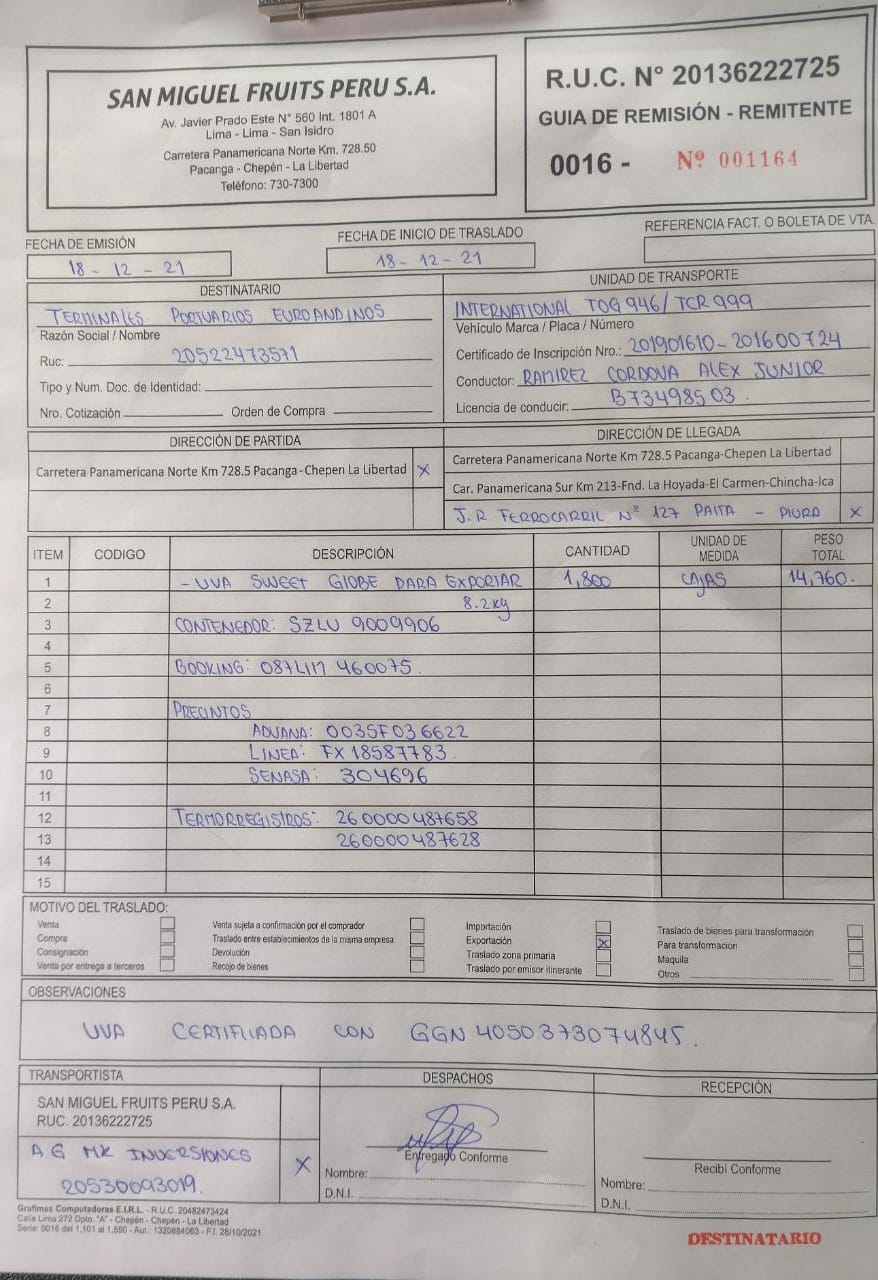 SAN MIGUEL FRUITS PERU S.A.
Av. Javier Prado Este N° 560 Int. 1801 A
Lima - Lima - San Isidro
Carretera Panamericana Norte Km. 728.50
Pacanga - Chepén - La Libertad
Teléfono: 730-7300
R.U.C. N° 20136222725
GUIA DE REMISIÓN - REMITENTE
0016 - Nº 001164
FECHA DE EMISIÓN
18 - 12 - 21
FECHA DE INICIO DE TRASLADO
18 - 12 - 21
REFERENCIA FACT. O BOLETA DE VTA.
DESTINATARIO
TERMINALES PORTUARIOS EUROANDINOS
Razón Social / Nombre
Ruc: 20522473571
Tipo y Num. Doc. de Identidad:
Nro. Cotización Orden de Compra
UNIDAD DE TRANSPORTE
INTERNATIONAL TOG 946 / TCR 999
Vehículo Marca / Placa / Número
Certificado de Inscripción Nro.: 201901610 - 201600724
Conductor: RAMIREZ CORDOVA ALEX JUNIOR
Licencia de conducir: B73498503.
DIRECCIÓN DE PARTIDA
Carretera Panamericana Norte Km 728.5 Pacanga-Chepen La Libertad X
DIRECCIÓN DE LLEGADA
Carretera Panamericana Norte Km 728.5 Pacanga-Chepen La Libertad
Car. Panamericana Sur Km 213-Fnd. La Hoyada-El Carmen-Chincha-Ica
J.R FERROCARRIL Nº 127 PAITA - PIURA X
ITEM CODIGO DESCRIPCIÓN CANTIDAD UNIDAD DE MEDIDA PESO TOTAL
1 - UVA SWEET GLOBE PARA EXPORTAR 1,800 CAJAS 14,760.
2 8.2 kg
3 CONTENEDOR: SZLU 9009906
4
5 BOOKING: 087LIM 460075.
6
7 PRECINTOS
8 ADUANA: 0035F036622
9 LINEA: FX 18587783.
10 SENASA: 304696
11
12 TERMORREGISTROS: 260000487658
13 260000487628
14
15
MOTIVO DEL TRASLADO:
Venta
Compra
Consignación
Venta por entrega a terceros
Venta sujeta a confirmación por el comprador
Traslado entre establecimientos de la misma empresa
Devolución
Recojo de bienes
Importación
Exportación X
Traslado zona primaria
Traslado por emisor itinerante
Traslado de bienes para transformación
Para transformación
Maquila
Otros
OBSERVACIONES
UVA CERTIFICADA CON GGN 4050373074845.
TRANSPORTISTA
SAN MIGUEL FRUITS PERU S.A.
RUC. 20136222725
A G MK INVERSIONES X
20530093019.
DESPACHOS
Entregado Conforme
Nombre:
D.N.I.
RECEPCIÓN
Recibi Conforme
Nombre:
D.N.I.
Grafimas Computadoras E.I.R.L. - R.U.C. 20482473424
Calle Lima 272 Dpto. "A" - Chepén - Chepén - La Libertad
Serie: 0016 del 1,101 al 1,550 - Aut.: 1320864063 - F.I. 28/10/2021
DESTINATARIO